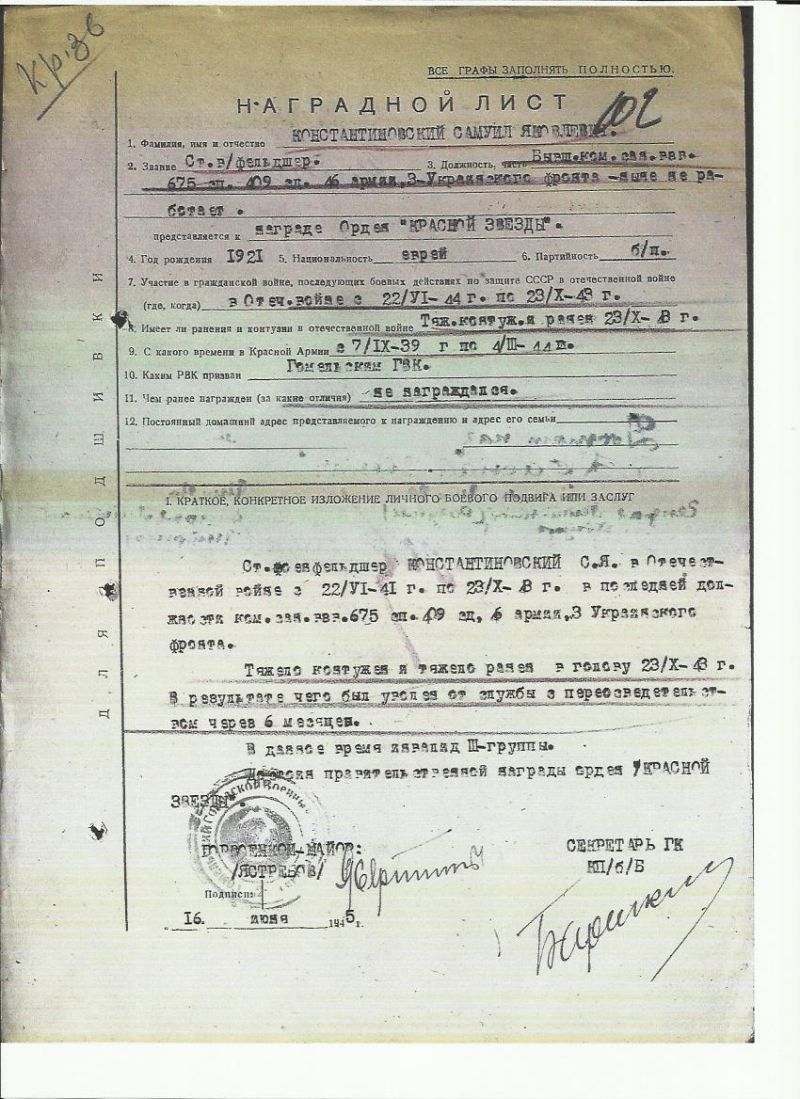 Кр.зв
ВСЕ ГРАФЫ ЗАПОЛНЯТЬ ПОЛНОСТЬЮ.
НАГРАДНОЙ ЛИСТ 102
1. Фамилия, имя и отчество КОНСТАНТИНОВСКИЙ САМУИЛ ЯКОВЛЕВИЧ.
2. Звание Ст.в/фельдшер. 3. Должность, часть Бывш.ком.сан.взв.
675 сп. 409 сд. 46 армии,3-Украинского фронта -ныне не ра-
ботает.
представляется к награде Орден "КРАСНОЙ ЗВЕЗДЫ".
4. Год рождения 1921 5. Национальность еврей 6. Партийность б/п.
7. Участие в гражданской войне, последующих боевых действиях по защите СССР в отечественной войне
(где, когда) в Отеч.войне с 22/VI-44 г. по 23/X-43 г.
8. Имеет ли ранения и контузии в отечественной войне Тяж.контуж.и ранен 23/X-43 г.
9. С какого времени в Красной Армии с 7/IX-39 г по 4/III-44 г.
10. Каким РВК призван Гомельским ГВК.
11. Чем ранее награжден (за какие отличия) не награждался.
12. Постоянный домашний адрес представляемого к награждению и адрес его семьи
I. КРАТКОЕ, КОНКРЕТНОЕ ИЗЛОЖЕНИЕ ЛИЧНОГО БОЕВОГО ПОДВИГА ИЛИ ЗАСЛУГ
Ст.военфельдшер КОНСТАНТИНОВСКИЙ С.Я. в Отечест-
венной войне с 22/VI-41 г. по 23/X-43 г. в последней дол-
жности ком.сан.взв.675 сп.409 сд, 46 армии,3 Украинского
фронта.
Тяжело контужен и тяжело ранен в голову 23/X-43 г.
В результате чего был уволен от службы с переосведетельст-
вом через 6 месяцев.
В данное время инвалид III-группы.
правительственной награды орден "КРАСНОЙ
ЗВЕЗДЫ".
ГОРВОЕНКОМ-МАЙОР: СЕКРЕТАРЬ ГК
/ЯСТРЕБОВ/ КП/б/Б
Подписи
16. июня 1945 г.
ДЛЯ ПОДШИВКИ